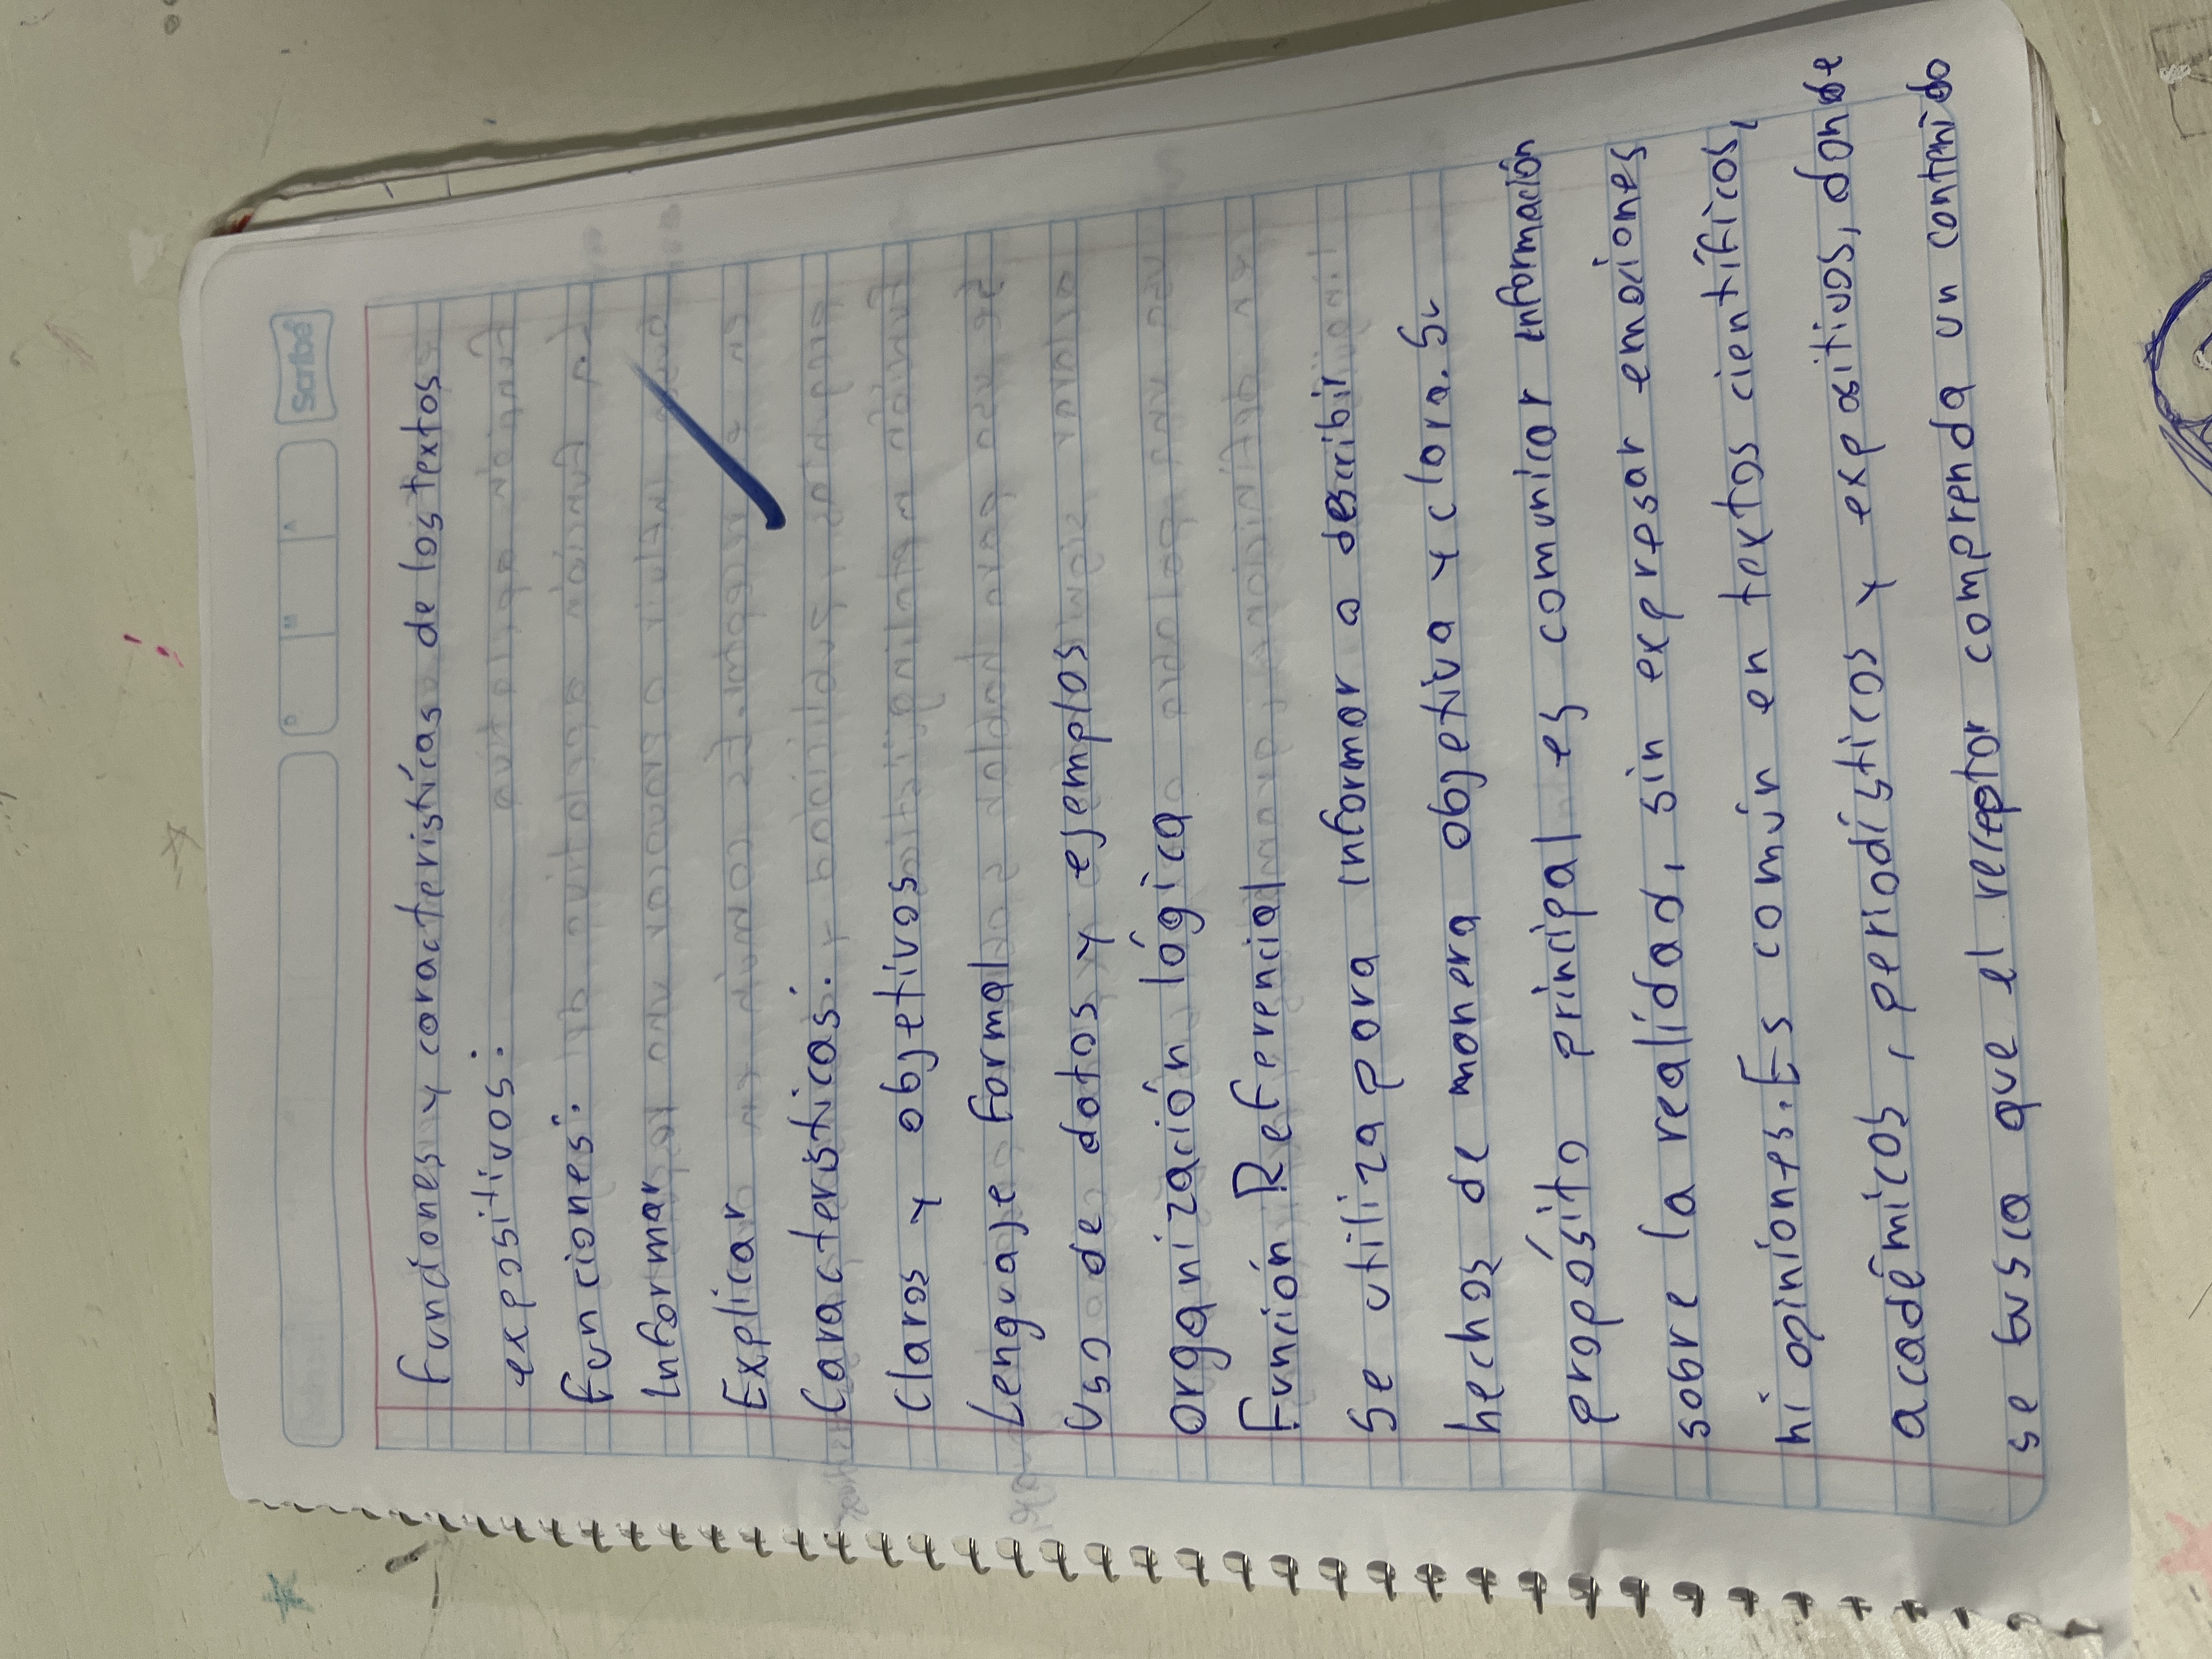 Scribe
Funciones y caracteristícas de los textos
expositivos:
Funciones:
Informar
Explicar
Caracteristicas:
Claros y objetivos
Lenguaje formal
Uso de datos y ejemplos
Organización lógica
Función Referencial
Se utiliza para informar o describir
hechos de manera objetiva y clara. Su
propósito principal es comunicar información
sobre la realidad, sin expresar emociones
ni opiniones. Es común en textos científicos,
académicos, periodísticos y expositivos, donde
se busca que el receptor comprenda un contenido